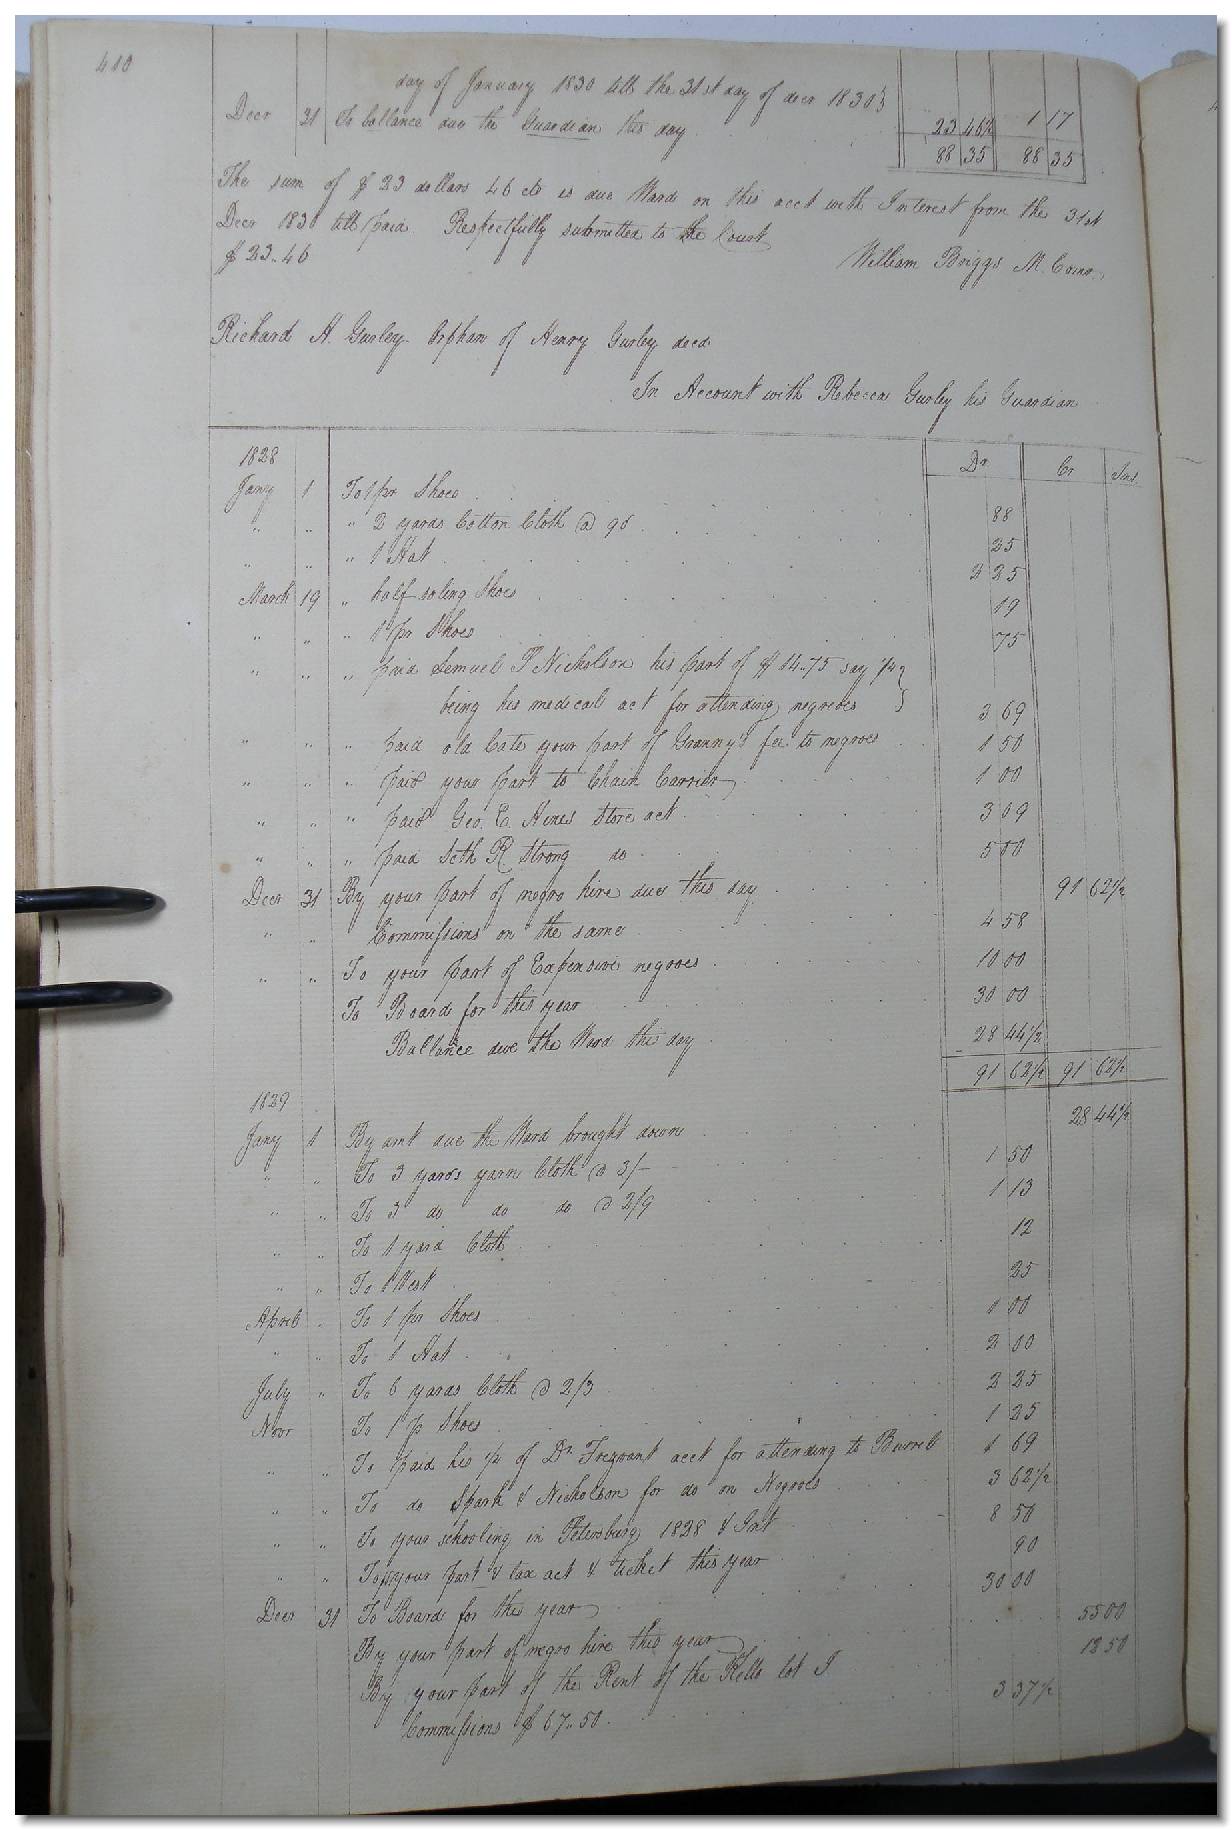 410
day of January 1830 till the 31st day of decr 1830}
Decr 31 To ballance due the Guardian this day 23 46½ 1 17
88 35 88 35
The sum of $ 23 dollars 46 cts is due Ward on this acct with Interest from the 31st
Decr 1830 till paid Respectfully submitted to the Court
$ 23..46 William Briggs M. Comr.
Richard H. Gurley Orphan of Henry Gurley decd
In Account with Rebecca Gurley his Guardian
1828 Dr Cr Int
Jany 1 To 1 pr Shoes 88
" " " 2 yards Cotton Cloth @ 9d 25
" " " 1 Hat 2 25
March 19 " half soling Shoes 19
" " " 1 pr Shoes 75
" " " paid Lemuel P Nicholson his part of $ 14..75 say 1/4 }
being his medical act for attending negroes } 3 69
" " " paid old Cate your part of Granny's fee to negroes 1 50
" " " paid your part to Chain Carrier 1 00
" " " paid Geo. E. Hines Store act 3 09
" " " paid Seth R. Strong do 5 00
Decr 31 By your part of negro hire due this day 91 62½
" " Commissions on the same 4 58
" " To your part of Expensive negroes 10 00
To Board for this year 30 00
Ballance due the Ward this day 28 44½
91 62½ 91 62½
1829
Jany 1 By amt due the Ward brought down 28 44½
" " To 3 yards yarn Cloth @ 3/- 1 50
" " To 3 do do do @ 2/9 1 13
" " To 1 yard Cloth 12
" " To 1 Vest 25
April " To 1 pr Shoes 1 00
" " To 1 Hat 2 00
July " To 6 yards Cloth @ 2/3 2 25
Novr To 1 p Shoes 1 25
" " To paid his of Dr. acct for attending to Burrell 1 69
" " To do Spark & Nicholson for do on Negroes 3 62½
" " To your schooling in Petersburg 1828 & Int 8 50
" " To your part & tax act & ticket this year 90
Decr 31 To Board for this year 30 00
By your part of negro hire this year 55 00
By your part of the Rent of the lot 12 50
Commissions $ 67..50 3 37½